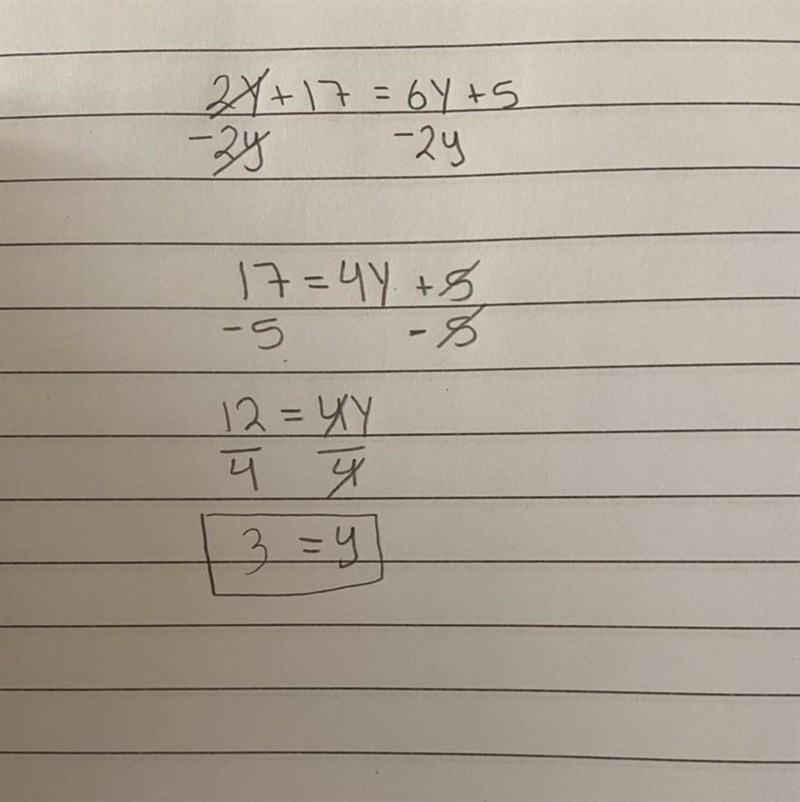 2y + 17 = 6y + 5
-2y -2y
17 = 4y + 5
-5 -5
12 = 4y
4 4
3 = y